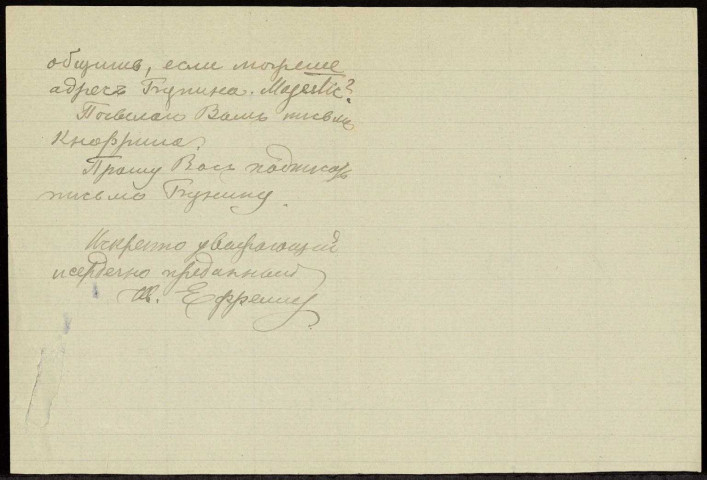 общите, если можете
адресъ Бунина. Majestic?
Посылаю Вамъ письмо
Кноррина.
Прошу Васъ подписать
письмо Бунину.
Искренно уважающій
и сердечно преданный
И. Ефремов